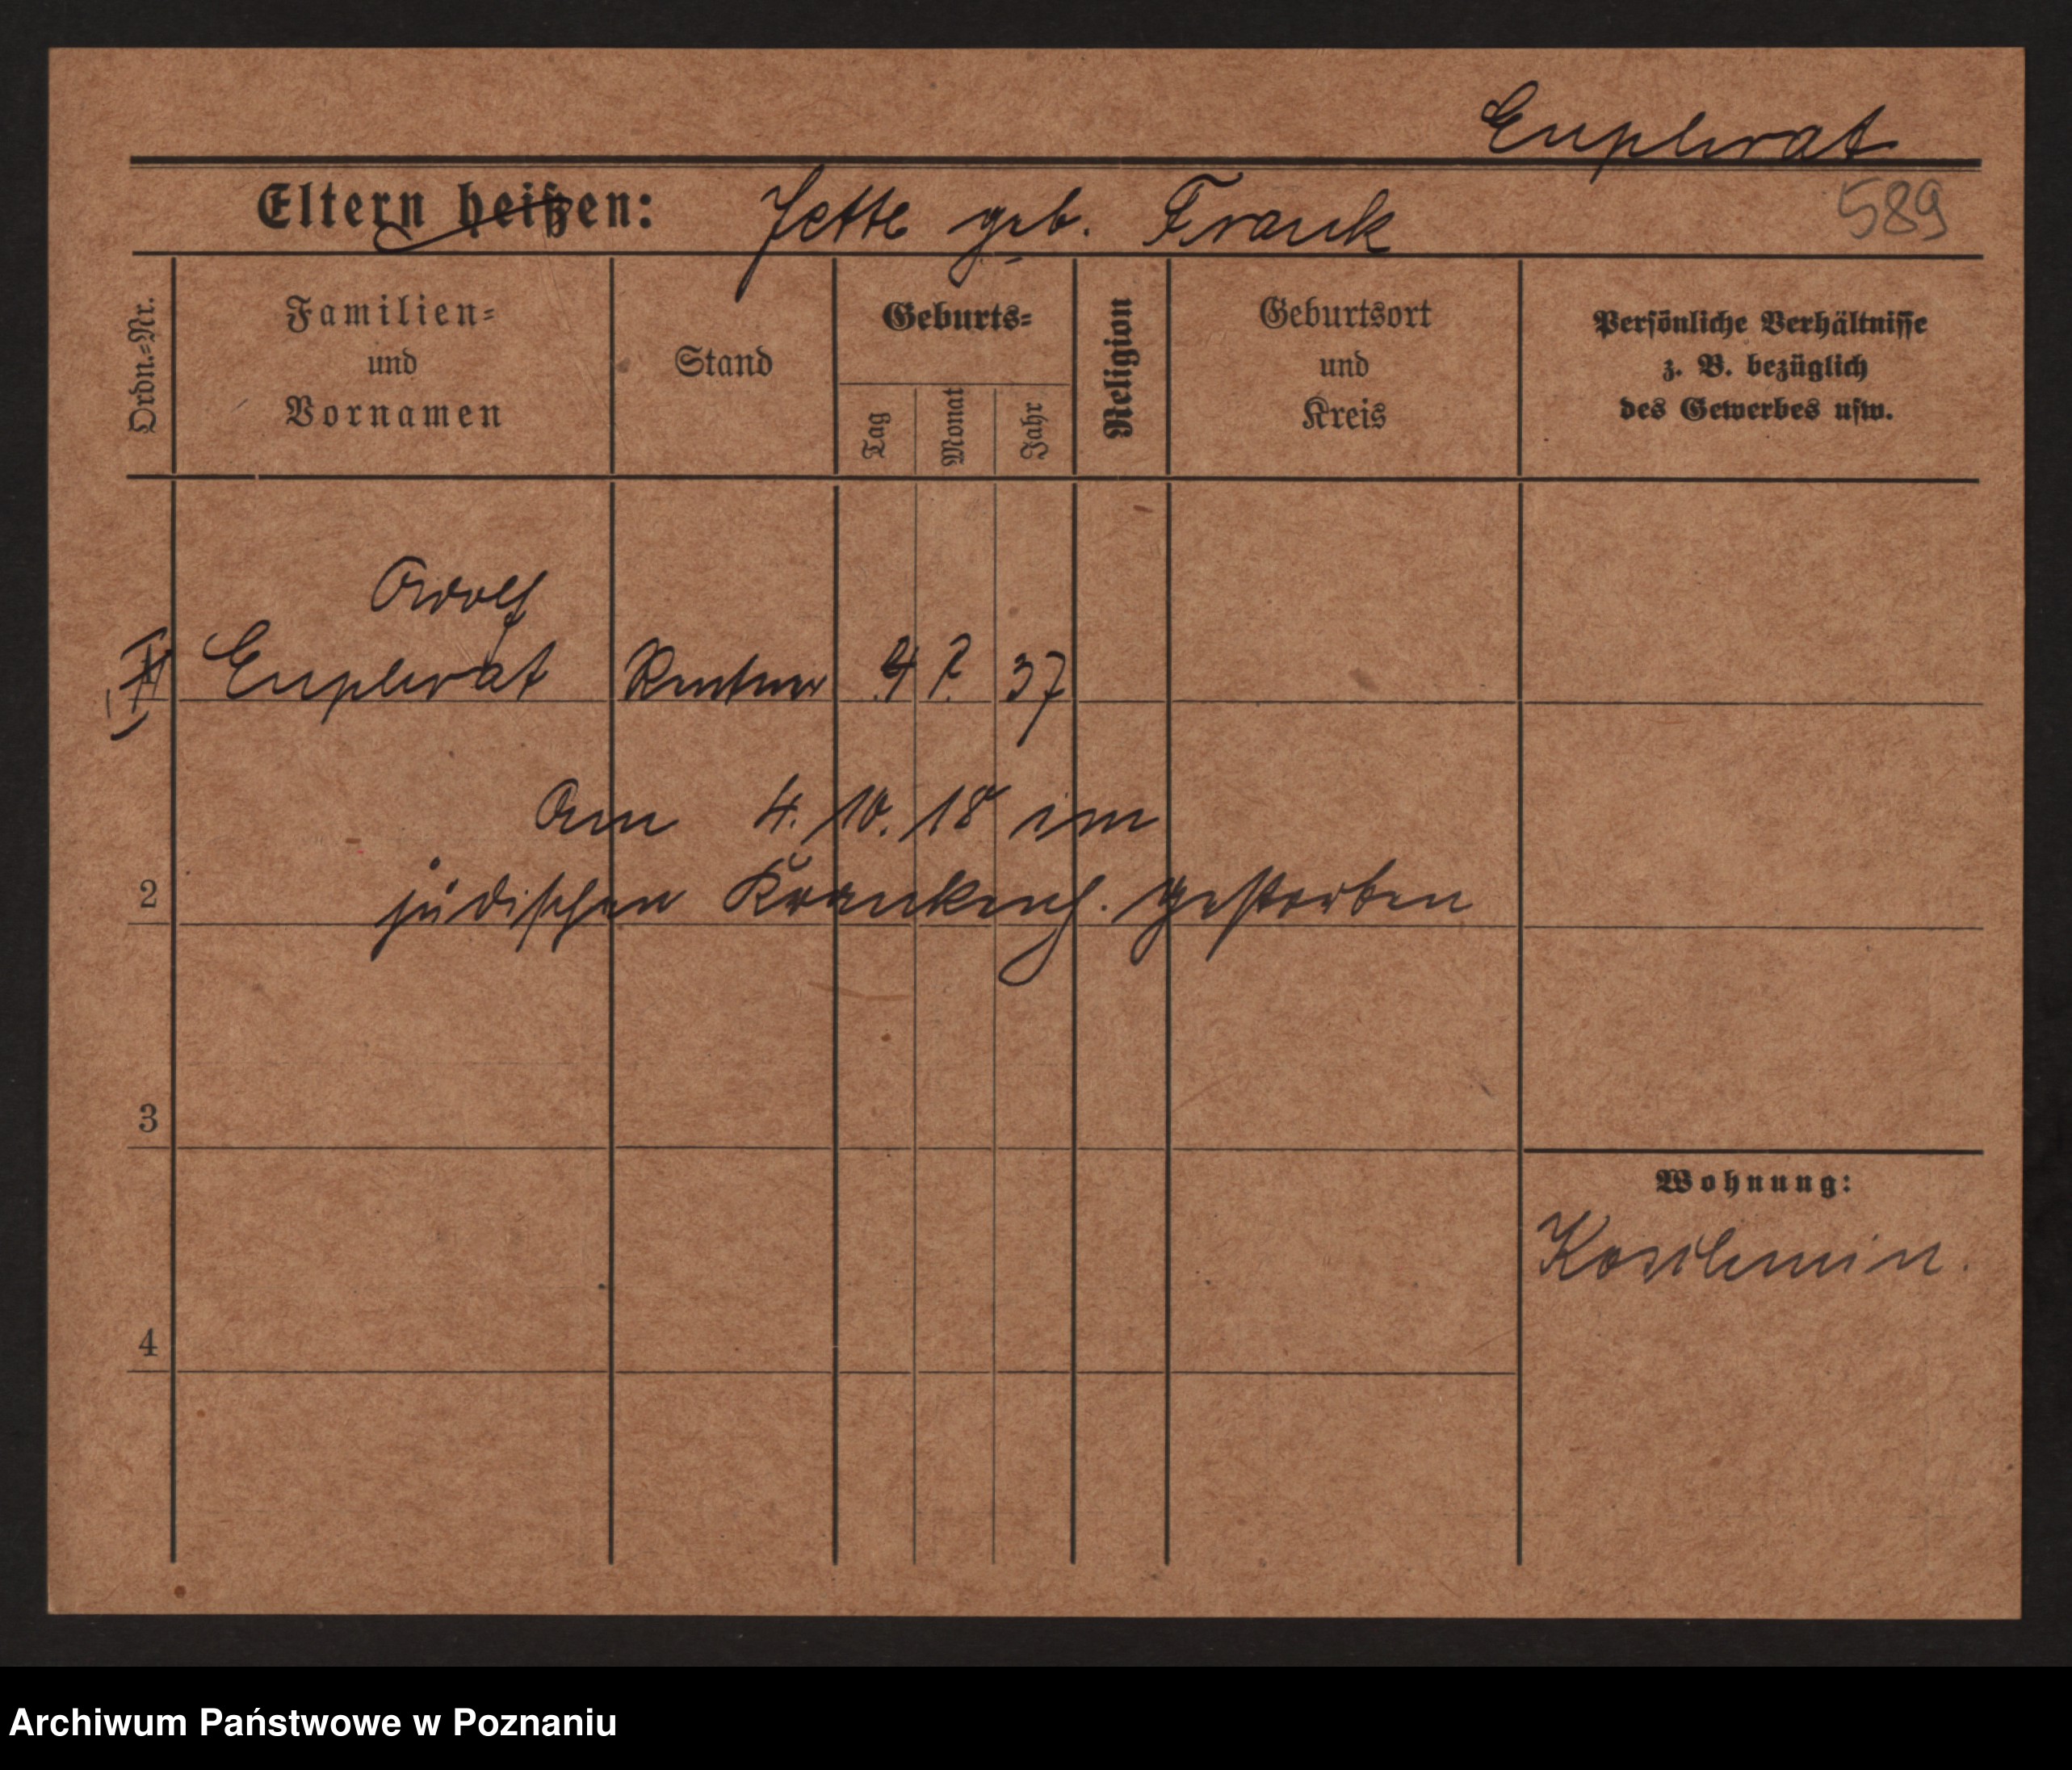 Euphrat
Eltern heißen: Jette geb. Frank
589
Ordn.-Nr.
Familien-
und
Vornamen
Stand
Geburts-
Tag
Monat
Jahr
Religion
Geburtsort
und
Kreis
Persönliche Verhältnisse
z. B. bezüglich
des Gewerbes usw.
Adolf
Euphrat Rentner 4 2. 37
Am 4. 10. 18 im
2
jüdischen Krankenh. gestorben
3
Wohnung:
Koschmin.
4
Archiwum Państwowe w Poznaniu